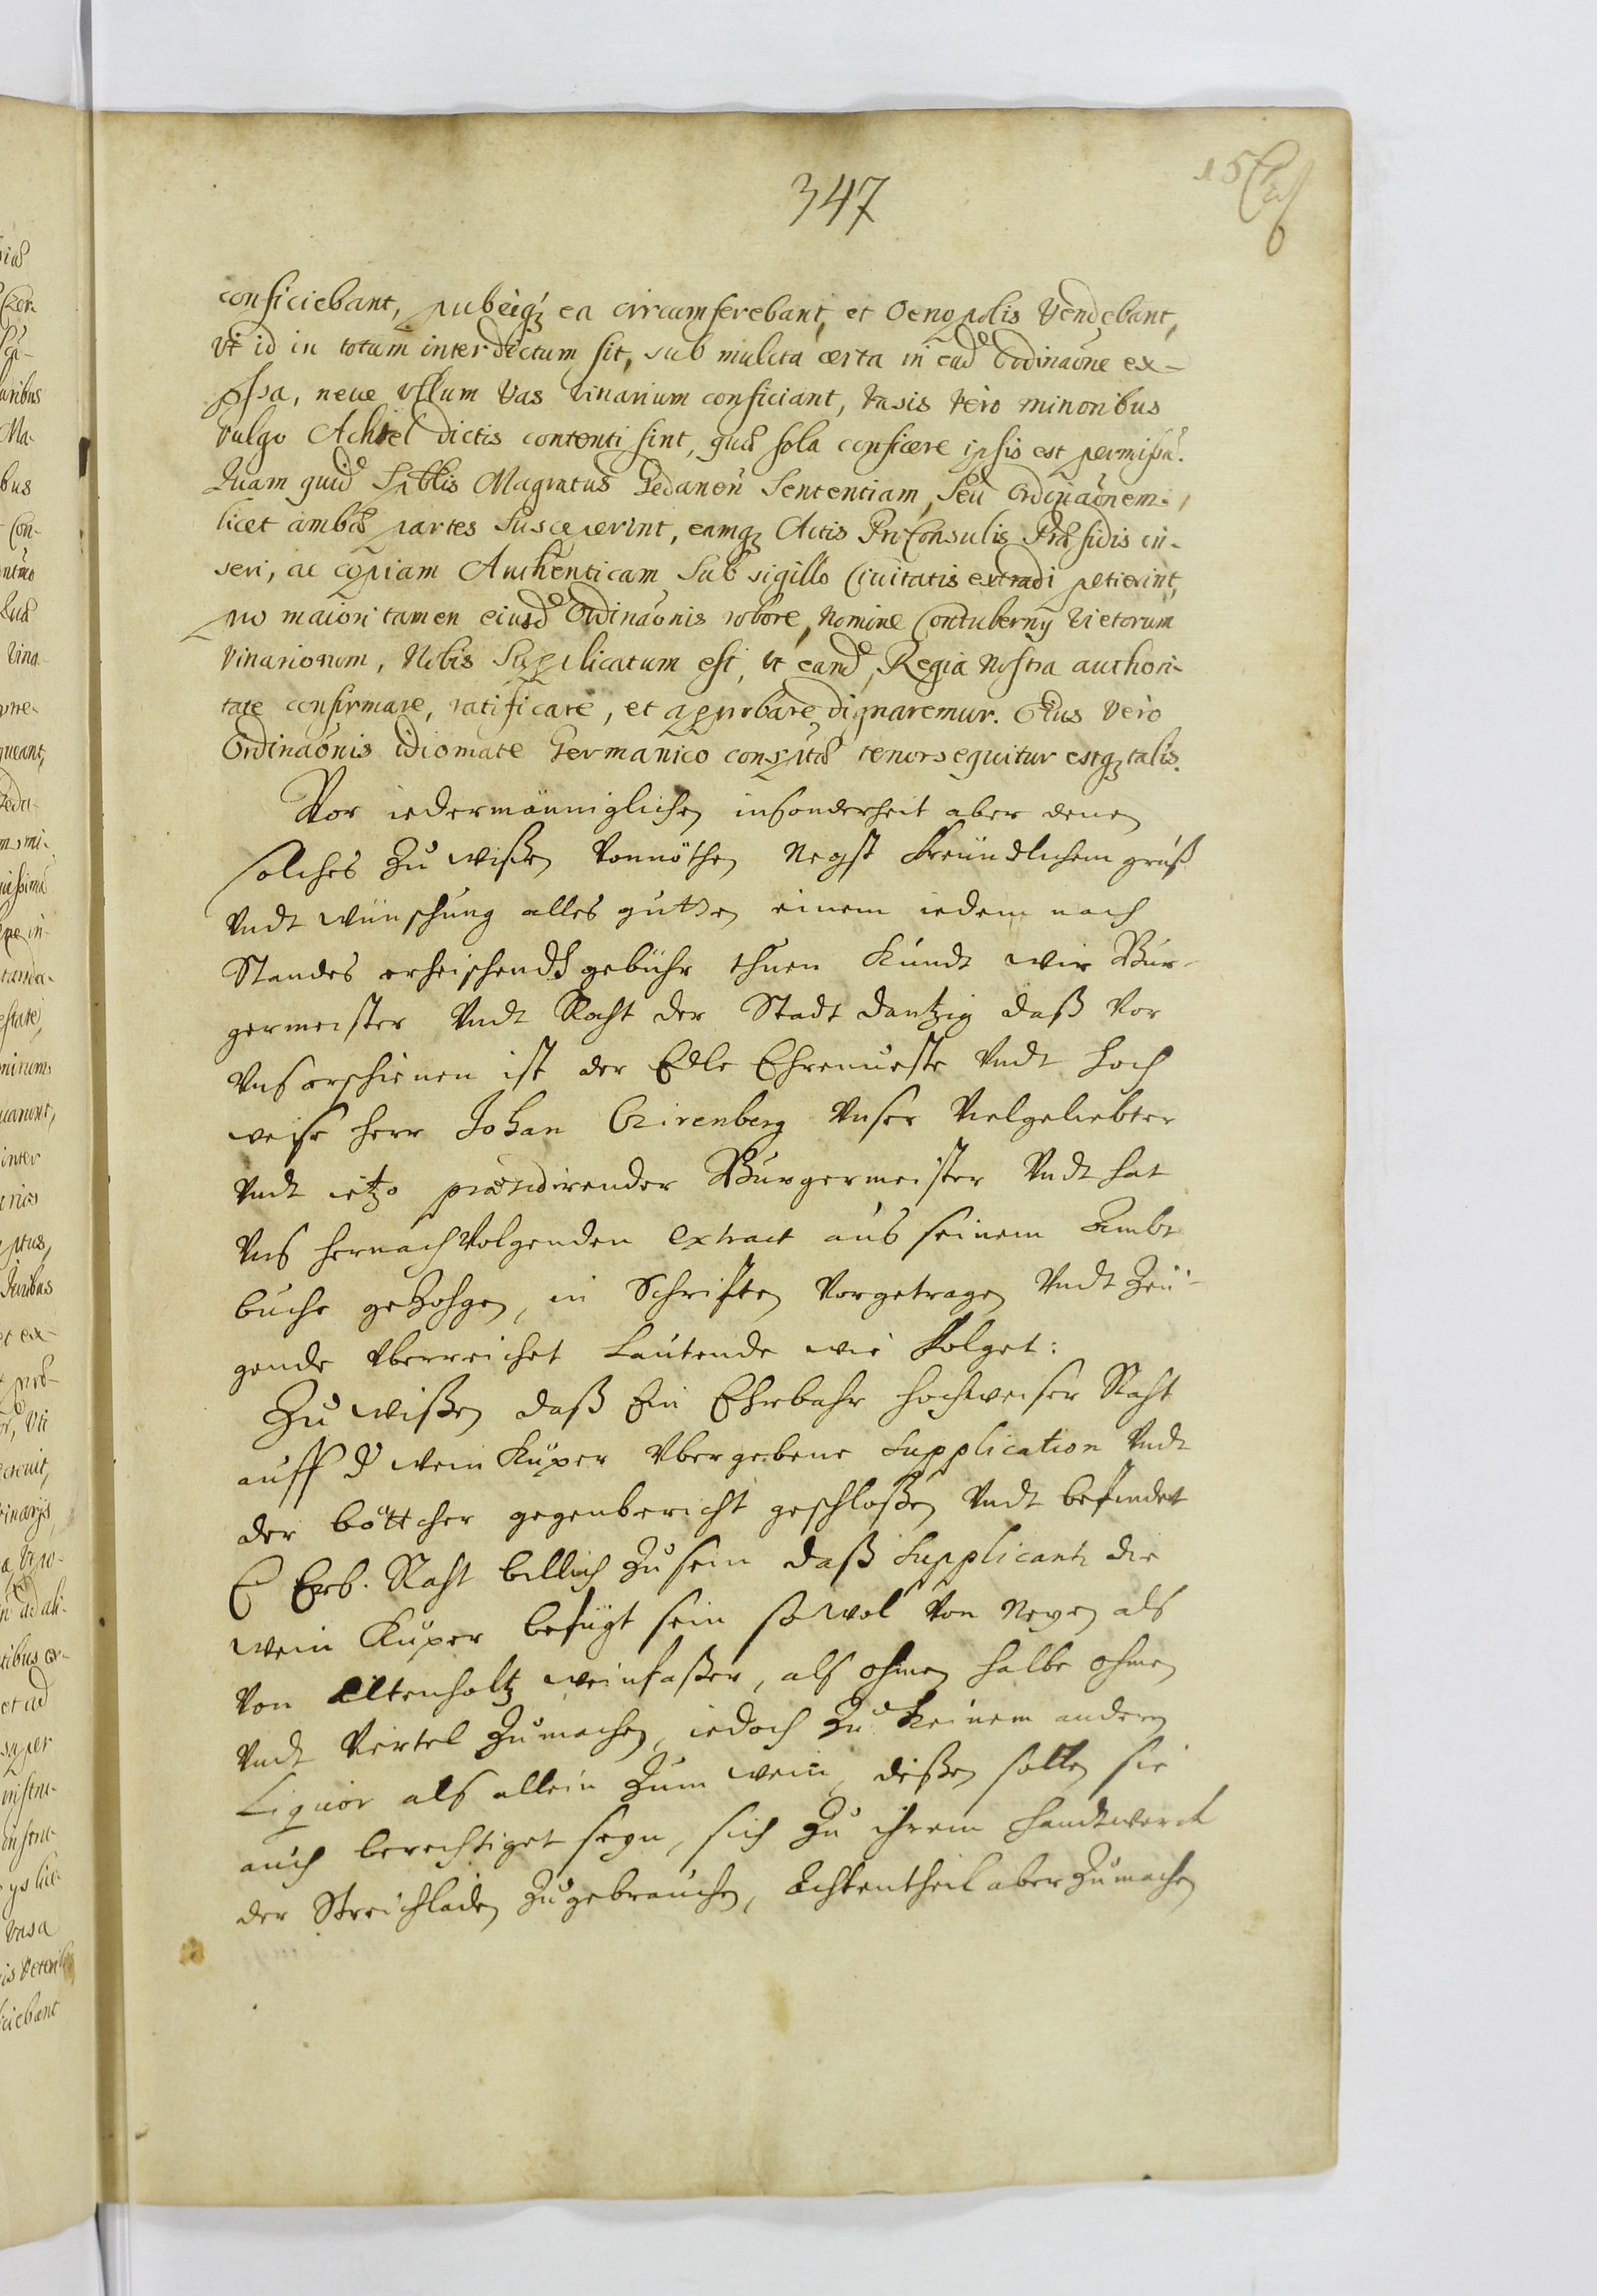 347
conficiebant, pubeiq₃ ea circumferebant, et Oenopolis Vendebant,
Vt id in totum interdictum sit, sub mulcta certa in ead Ordinaone ex-
pssa, neue vllum Vas Vinarium conficiant, Vasis vero minoribus
Vulgo Achtel dictis contenti sint, quæ sola conficere ipsis est permissũ.
Quam quid Spblis Magratus Gedanen Sententiam, Seu Ordinaonem,
licet ambæ partes Susceperint, eamq₃ Actis ProConsulis Præsidis in-
seri, ac copiam Authenticam Sub sigillo Ciuitatis extradi petierint,
pro maiori tamen eiusd Ordinaonis robore, Nomine Contubernÿ Vietorum
Vinariorum, Nobis Supplicatum est, vt eand, Regia Nostra authori-
tate confirmare, ratificare, et approbare dignaremur. Cuius Vero
Ordinaonis idiomate Germanico conscriptæ tenor sequitur estq₃ talis.
Vor iedermänniglichen insonderheit aber denen
solches Zu wißen Vonnöthen Negst freundlichem gruß
Vndt wünschung alles gutten einem iedem nach
Standes erheischendt gebühr thuen Kundt wir Bur-
germeister Vndt Raht der Stadt dantzig daß Vor
Vnß erschienen ist der Edle Ehrenueste Vndt hoch
weise herr Johan Czirenberg Vnser Vielgeliebter
Vndt ietzo præsidirender Burgermeister Vndt hat
Vnß hernach Volgenden extract aus seinem Ambt
buche geZohgen, in Schriften Vorgetragen Vndt Zeü-
gende Vberreichet Lautende wie folget:
Zu wißen daß Ein Ehrbahr hochweiser Raht
auff d wein Küper Vbergebene Supplication Vndt
der böttcher gegenbericht geschloßen Vndt befindet
E Erb. Raht billich Zu sein daß Supplicanti die
wein Küper befugt sein sowol Von Neyen als
Von altenholtz weinfaßer, als ohmen halbe ohmen
Vndt Viertel Zumachen, iedoch Zu Keinem andern
Liquor als allein Zum wein, dißen sollen sie
auch berechtiget seyn, sich Zu ihrem handtwerck
der Streichladen Zugebrauchen, Achtentheil aber Zumachen